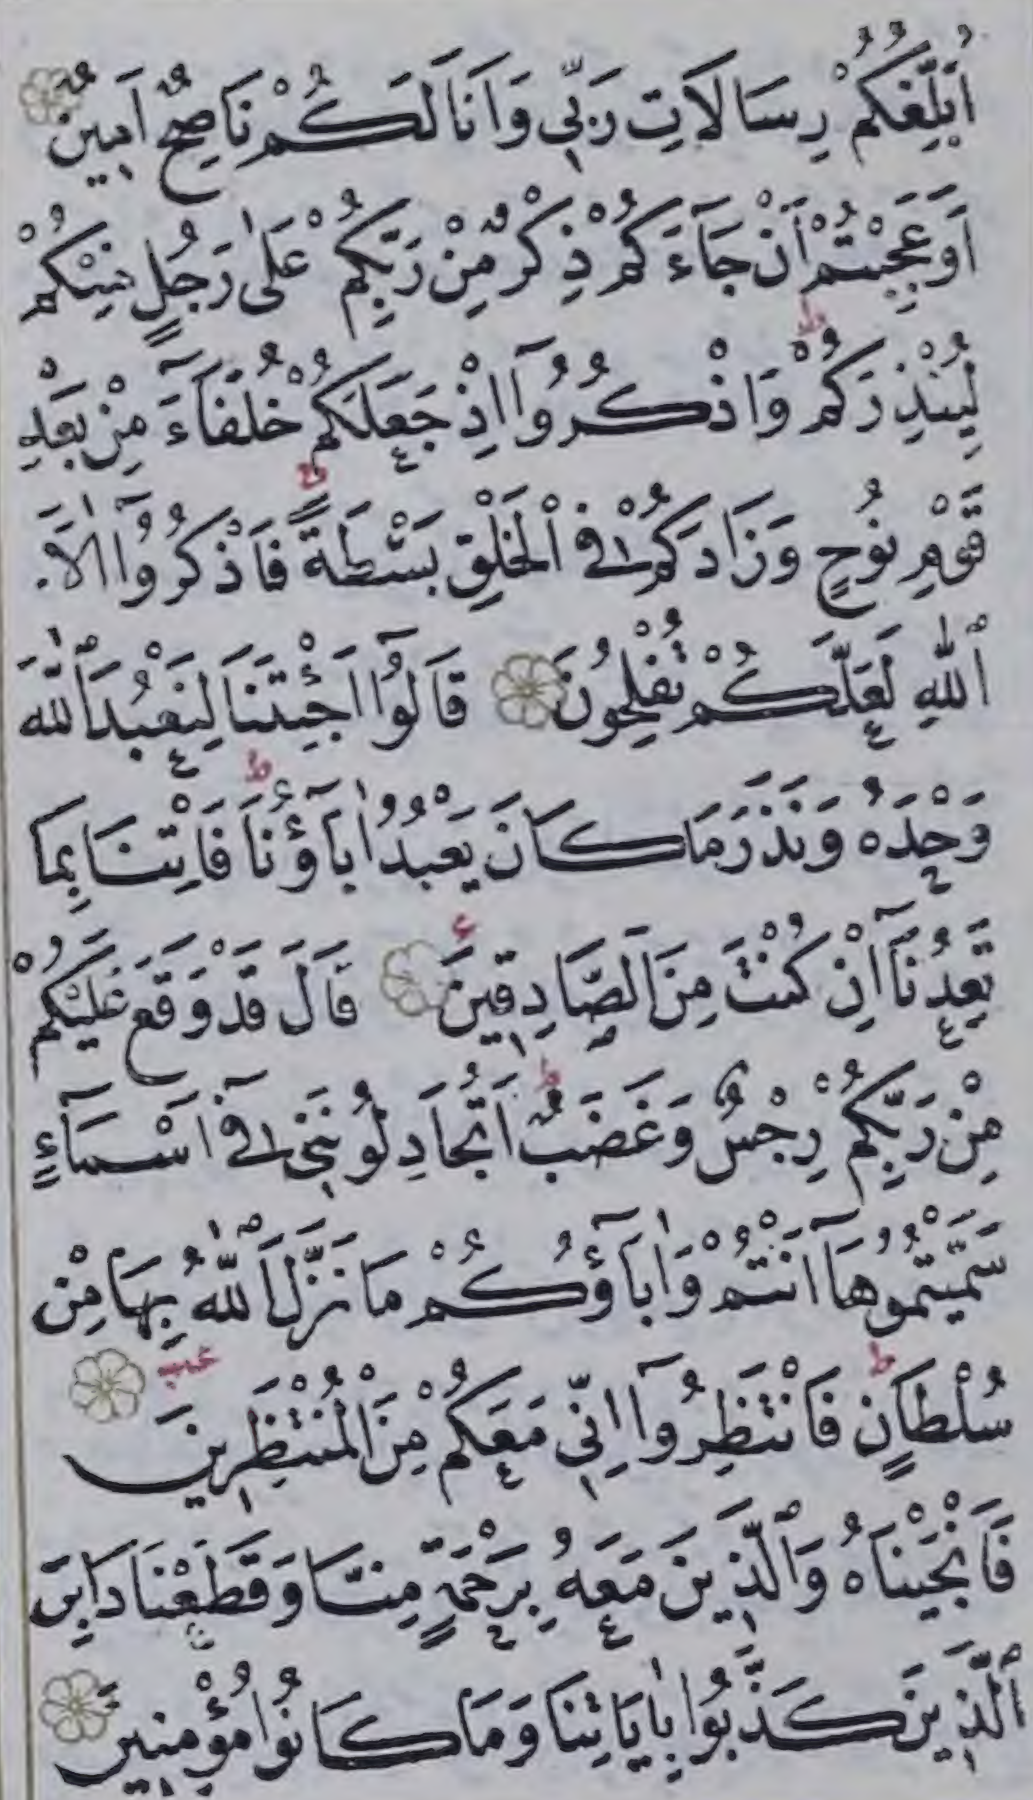 اُبَلِّغُكُمْ رِسَالَاتِ رَبّ۪ي وَاَنَا۬ لَكُمْ نَاصِحٌ اَم۪ينٌ
اَوَعَجِبْتُمْ اَنْ جَٓاءَكُمْ ذِكْرٌ مِنْ رَبِّكُمْ عَلٰى رَجُلٍ مِنْكُمْ
لِيُنْذِرَكُمْ وَاذْكُرُٓوا اِذْ جَعَلَكُمْ خُلَفَٓاءَ مِنْ بَعْدِ
قَوْمِ نُوحٍ وَزَادَكُمْ فِي الْخَلْقِ بَسْطَةً فَاذْكُرُٓوا اٰلَٓاءَ
اللّٰهِ لَعَلَّكُمْ تُفْلِحُونَ قَالُٓوا اَجِئْتَنَا لِنَعْبُدَ اللّٰهَ
وَحْدَهُ وَنَذَرَ مَا كَانَ يَعْبُدُ اٰبَٓاؤُ۬نَا فَأْتِنَا بِمَا
تَعِدُنَٓا اِنْ كُنْتَ مِنَ الصَّادِق۪ينَ قَالَ قَدْ وَقَعَ عَلَيْكُمْ
مِنْ رَبِّكُمْ رِجْسٌ وَغَضَبٌ اَتُجَادِلُونَن۪ي ف۪ٓي اَسْمَٓاءٍ
سَمَّيْتُمُوهَٓا اَنْتُمْ وَاٰبَٓاؤُ۬كُمْ مَا نَزَّلَ اللّٰهُ بِهَا مِنْ
سُلْطَانٍ فَانْتَظِرُٓوا اِنّ۪ي مَعَكُمْ مِنَ الْمُنْتَظِر۪ينَ
فَاَنْجَيْنَاهُ وَالَّذ۪ينَ مَعَهُ بِرَحْمَةٍ مِنَّا وَقَطَعْنَا دَابِرَ
الَّذ۪ينَ كَذَّبُوا بِاٰيَاتِنَا وَمَا كَانُوا مُؤْمِن۪ينَ